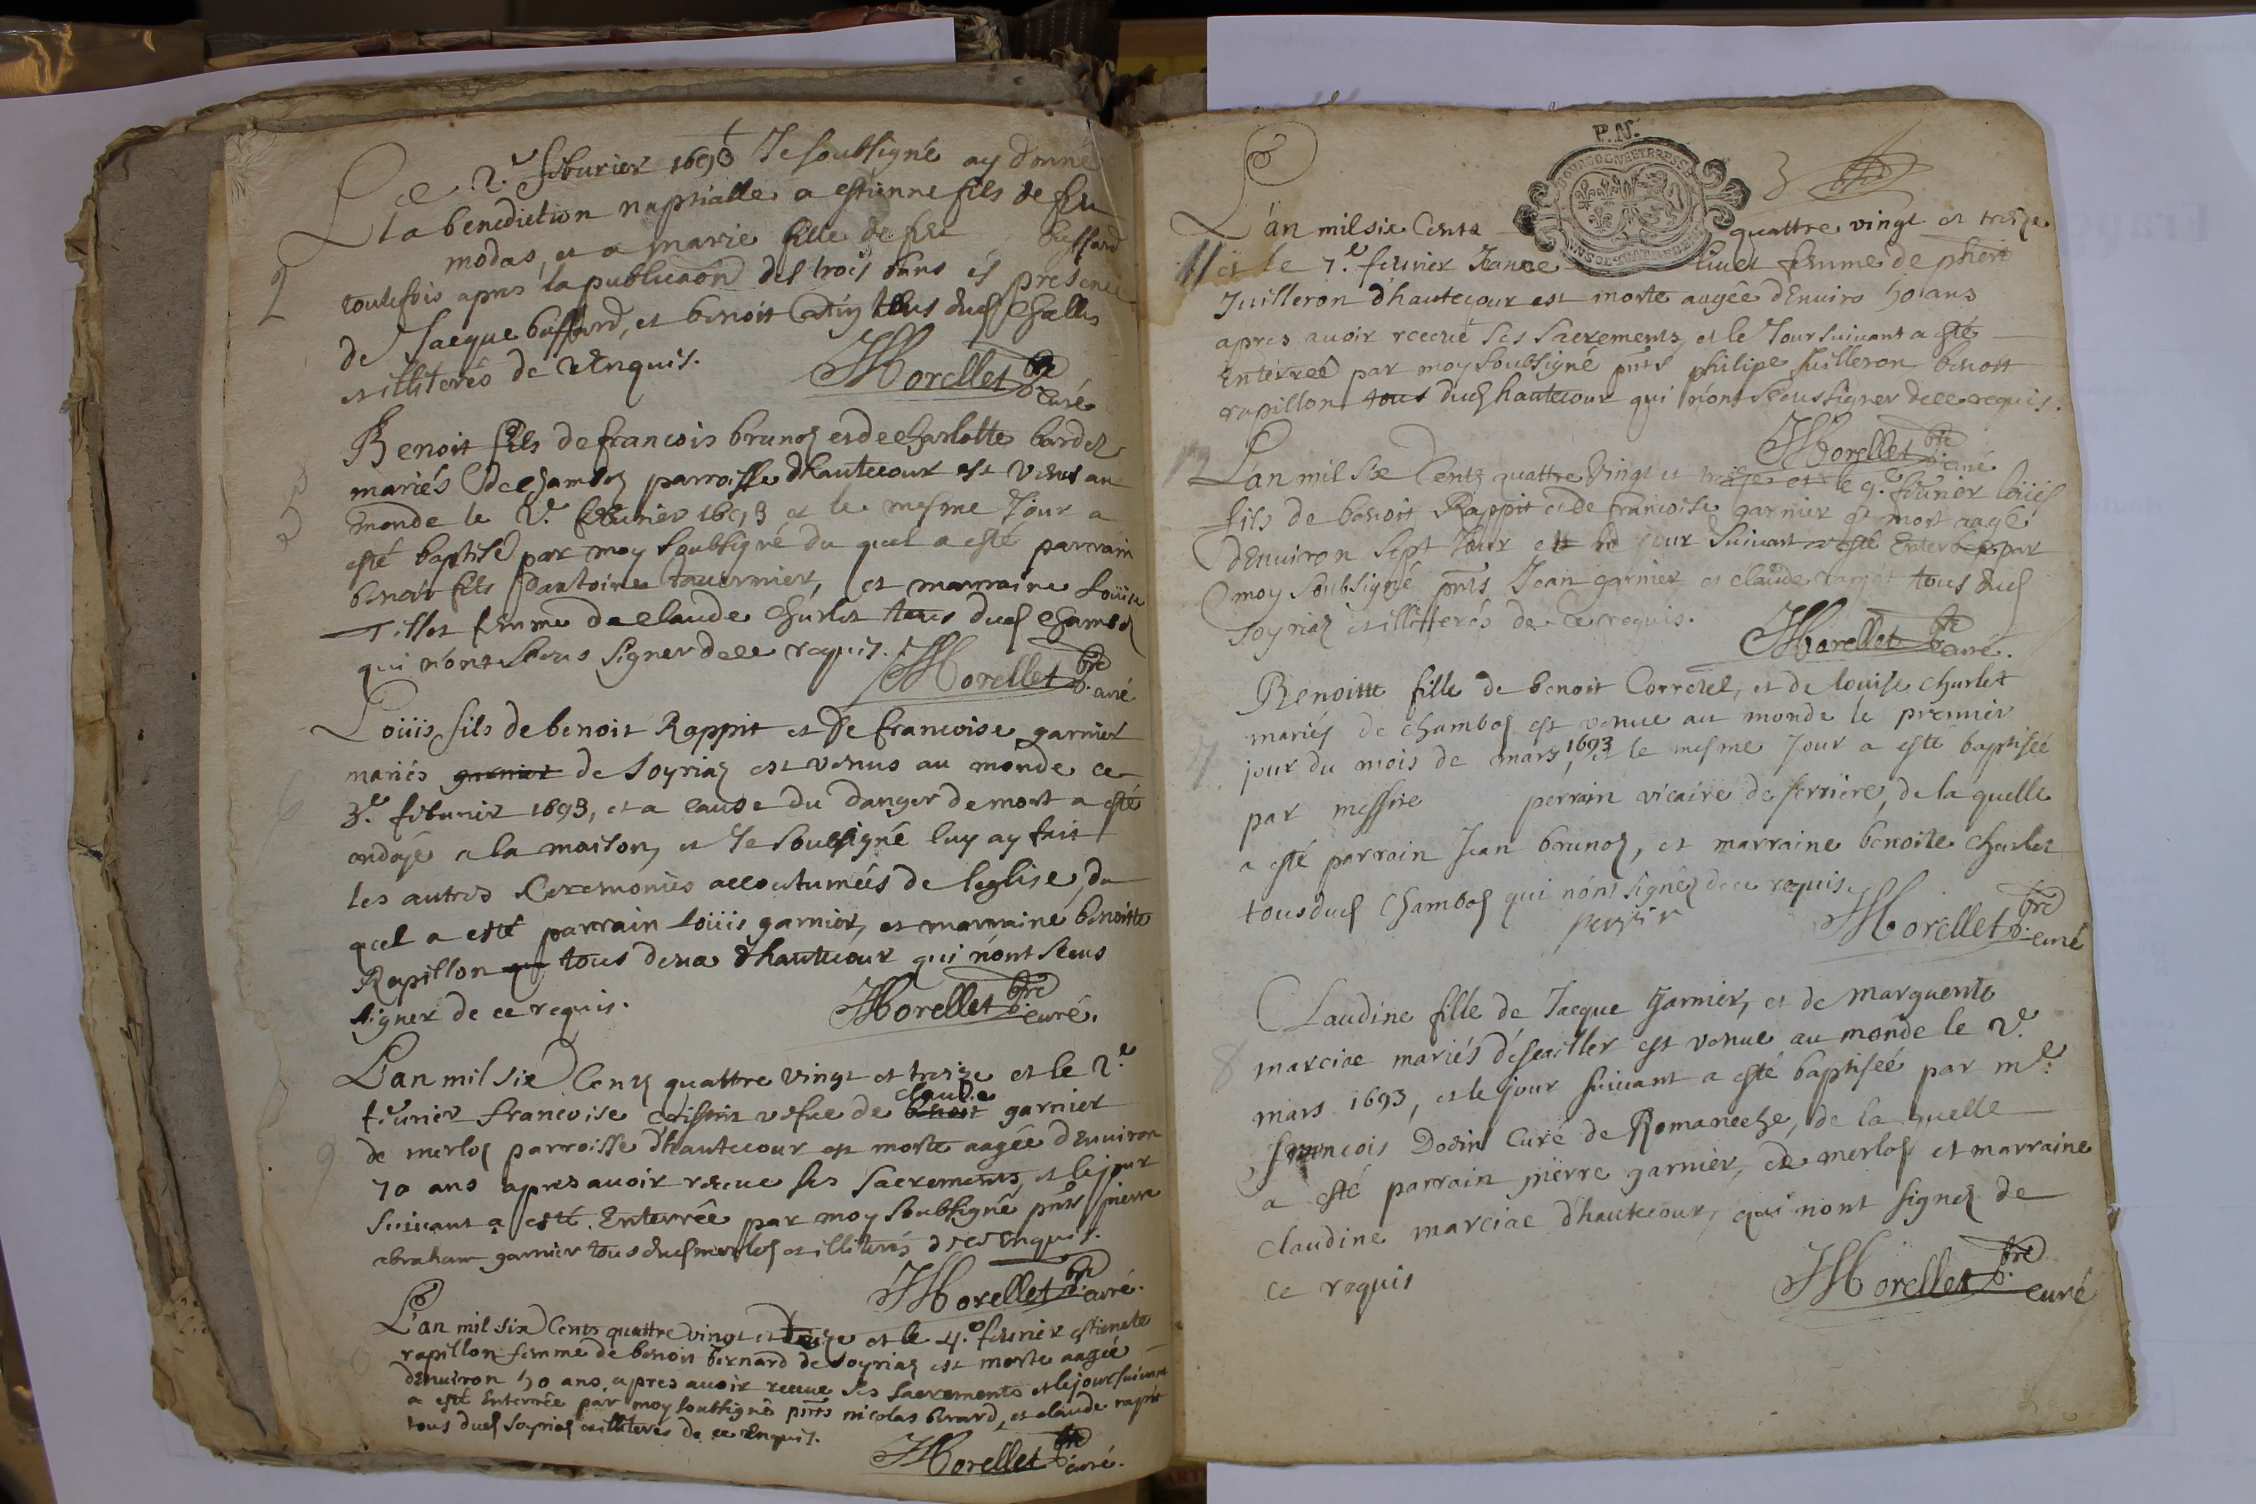 Ce 2.e feburier 1693 Je soubsigné ay donné
la benediction nuptialle a estienne fils de feu
modas, et a marie fille de feu buffard
2
toutefois apres la publicaon des trois bans és presence
de Jacque buffard, et benoit tous dud Challes
et illiterés de ce Enquis.
JMorellet pbre curé
Benoit fils de francois brunoz et de Charlotte bardet
mariés de Chamboz parroisse dhautecour est venus au
5
monde le 2.e feburier 1693 et le mesme Jour a
esté baptisé par moy soubsigné du quel a esté parrain
benoit fils dantoine tavernier, et marraine Loüise
Tillet femme de claude Churlet tous dud Chamboz
qui n'ont sceus signer de ce requis.
JMorellet pbre curé
Loüis fils de benoit Rappit et de francoise garnier
mariés garnier de Soyriaz est venus au monde ce
6
3.e feburier 1693, et a cause du danger de mort a esté
ondoyé a la maison, et Je soubsigné luy ay fait
les autres Ceremonies accoutumées de leglise, du
quel a esté parrain Loüis garnier, et marraine benoitte
Rapillon qui tous deux dhautecour qui n'ont sceus
signer de ce requis.
JMorellet pbre curé.
L'an mil six Cents quattre vingt et treize et le 2.e
claude
feurier francoise vefue de benoit garnier
de merloz parroisse dhautecour est morte aagée d'Enuiron
9
70 ans apres auoir receue ses Sacrements, et le jour
suiuant a esté Enterrée par moy soubsigné pnts pierre
abraham garnier tous dud merloz et illiterés de ce Enquis.
JMorellet pbre curé.
L'an mil six Cents quattre vingt et treize et le 4.e feurier estienette
rapillon femme de benoit bernard de Soyriaz est morte aagée
d'Enuiron 50 ans apres auoir receue ses Sacrements et le jour suiuant
a esté Enterrée par moy soubsigné pnts nicolas berard, et claude rapit
tous dud Soyriaz et illiteres de ce Enquis.
JMorellet pbre curé.
P.N.
3
L'an mil six Cents quattre vingt et treize
11
et le 7.e feurier Jeanne liuet femme de phlert
Juilleron d'hautecour est morte aagée d'Enuiro 50 ans
apres auoir receue ses Sacrements, et le Jour suiuant a esté
Enterrée par moy soubsigné pnts philipe Juilleron benoit
rapillon tous dud hautecour qui n'ont sceus signer de ce requis.
JMorellet pbre curé
12
L'an mil six Cents quattre vingt et treize et le 9.e feurier loüis
fils de benoit Rappit et de francoise garnier est mort aagé
d'Enuiron sept Jour et le jour suiuant a esté Enterré par
moy soubsigné pnts Jean garnier et claude rapit tous dud
Soyriaz et illitterés de ce requis.
JMorellet pbre curé.
Benoitte fille de benoit Corretel, et de louise churlet
mariés de chamboz est venue au monde le premier
7
jour du mois de mars, 1693 et le mesme Jour a esté baptisée
par messire perrain vicaire de serriere, de la quelle
a esté parrain Jean brunoz, et marraine benoite churlet
tous dud Chamboz qui n'ont signéz de ce requis
JMorellet pbre curé
Claudine fille de Jacque garnier, et de marguerite
8
marciac mariés d'escuiller est venue au monde le 2.e
mars 1693, et le jour suiuant a esté baptisée par m.e
francois Dodin Curé de Romaneche, de la quelle
a esté parrain pierre garnier, de merloz et marraine
claudine marciac d'hautecour, qui n'ont signez de
ce requis
JMorellet pbre curé